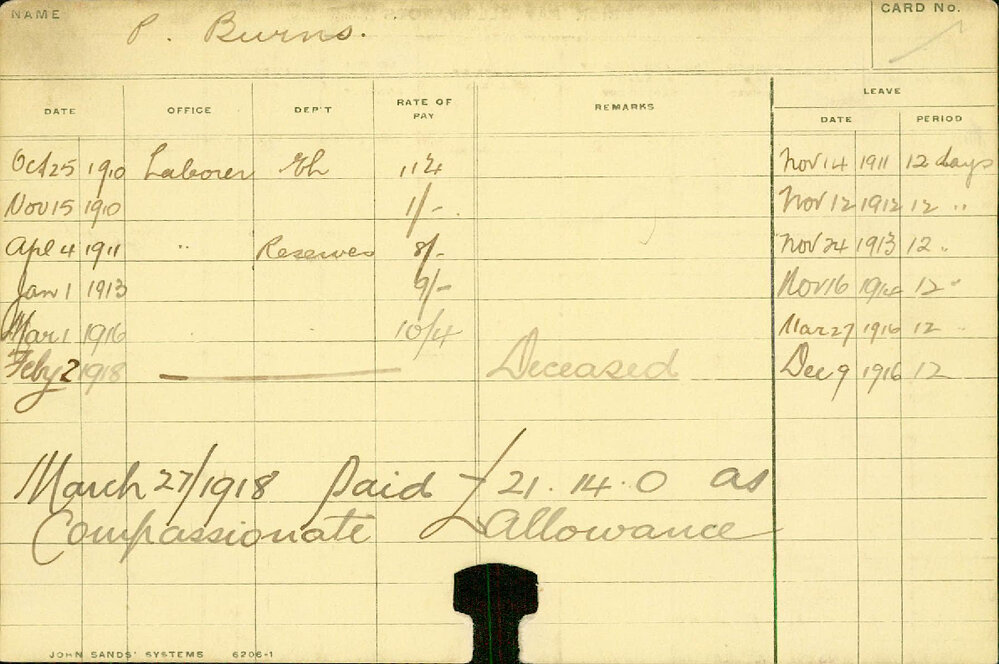 NAME P. Burns. CARD No.
LEAVE
DATE OFFICE DEP'T RATE OF PAY REMARKS DATE PERIOD
Oct 25 1910 Laborer Nov 14 1911 12 days
Nov 15 1910 Nov 12 1912 12 "
Apl 4 1911 " Reserves 8/- Nov 24 1913 12 "
Jan 1 1913 9/- Nov 16 1914 12 "
Mar 1 1916 10/4 Mar 27 1916 12 "
Feby 2 1918 Deceased Dec 9 1916 12
March 27/1918 Paid £21.14.0 as
Compassionate Allowance
JOHN SANDS' SYSTEMS 6206-1